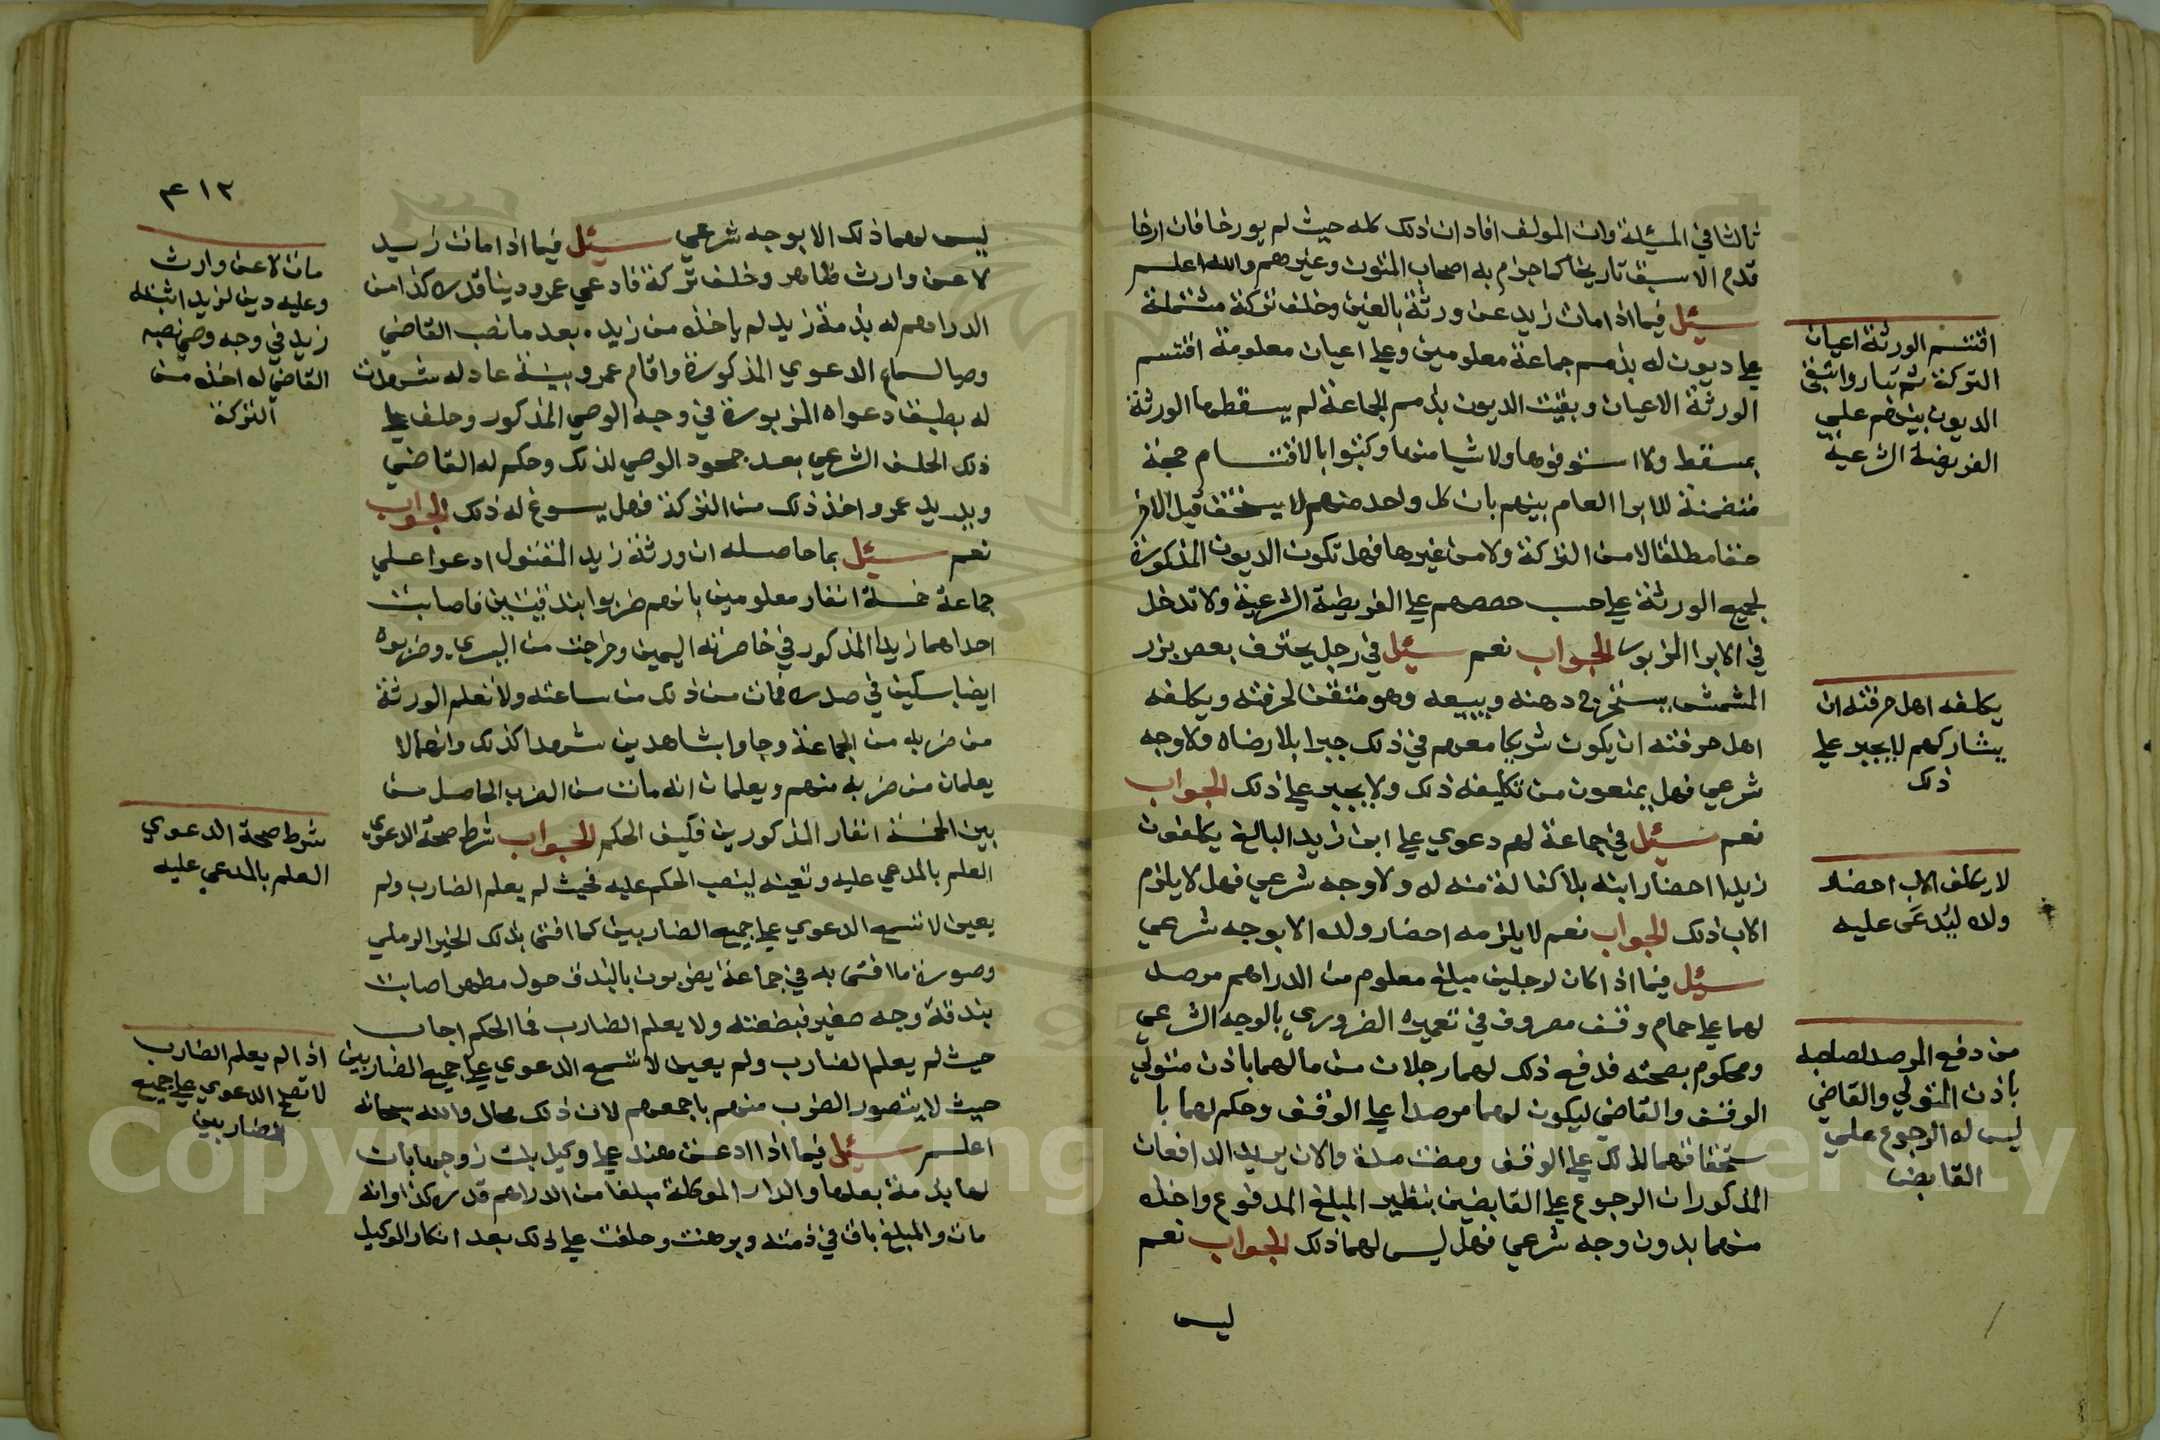 ثالثا في المسئلة وان المولف افاد ان ذلك كله حيث لم يورخا فان ارخا
قدم الاسبق تاريخا كما جزم به اصحاب المتون وغيرهم والله اعلم
سئل فيما اذا مات زيد عن ورثة بالغين وخلف تركة مشتملة
علي ديون له بذمم جماعة معلومين وعلي اعيان معلومة اقتسم
الورثة الاعيان وبقيت الديون بذمم الجماعة لم يسقطها الورثة
بمسقط ولا استوفوها ولا شيا منها وكتبوا بالاقتسام حجة
متضمنة للابرا العام بينهم بان كل واحد منهم لا يستحق قبل الاخر
حقا مطلقا لا من التركة ولا من غيرها فهل تكون الديون المذكورة
لجميع الورثة علي حسب حصصهم علي الفريضة الشرعية ولا تدخل
في الابرا المزبور الجواب نعم سئل في رجل يحترف بعصر بزر
المشمش يستخرج دهنه ويبيعه وهو متقن لحرفته ويكلفه
اهل حرفته ان يكون شريكا معهم في ذلك جبرا بلا رضاه ولا وجه
شرعي فهل يمنعون من تكليفه ذلك ولا يجبر علي ذلك الجواب
نعم سئل في جماعة لهم دعوي علي ابن زيد البالغ يكلفون
زيدا احضار ابنه بلا كفالة منه له ولا وجه شرعي فهل لا يلزم
الاب ذلك الجواب نعم لا يلزمه احضار ولده الا بوجه شرعي
سئل فيما اذا كان لرجلين مبلغ معلوم من الدراهم مرصد
لهما علي حمام وقف مصروف في تعميره الضروري بالوجه الشرعي
ومحكوم بصحته فدفع ذلك لهما رجلان من مالهما باذن متولي
الوقف والقاضي ليكون لهما مرصدا علي الوقف وحكم لهما با
ستحقاقهما لذلك علي الوقف ومضت مدة والان يريد الدافعان
المذكوران الرجوع علي القابضين بنظير المبلغ المدفوع واخذه
منهما بدون وجه شرعي فهل ليس لهما ذلك الجواب نعم
ليس
اقتسم الورثة اعيان
التركة ثم تباروا تبقى
الديون بينهم علي
الفريضة الشرعية
يكلفه اهل حرفته ان
يشاركهم لا يجبر علي
ذلك
لا يكلف الاب احضار
ولده ليُدعَى عليه
من دفع المرصد لصاحبه
باذن المتولي والقاضي
ليس له الرجوع علي
القابض
٤١٢
ليس لهما ذلك الا بوجه شرعي سئل فيما اذا مات زيد
لا عن وارث ظاهر وخلف تركة فادعي عمرو دينا قدره كذا من
الدراهم له بذمة زيد لم ياخذه من زيد بعد ما نصب القاضي
وصيا لسماع الدعوي المذكورة واقام عمرو بينة عادلة شهدت
له بطبق دعواه المزبورة في وجه الوصي المذكور وحلف علي
ذلك الحلف الشرعي بعد جحود الوصي لذلك وحكم له القاضي
ويريد عمرو اخذ ذلك من التركة فهل يسوغ له ذلك الجواب
نعم سئل بما حاصله ان ورثة زيد المقتول ادعوا علي
جماعة خمسة انفار معلومين بانهم ضربوا بندقيتين فاصابت
احداهما زيدا المذكور في خاصرته اليمين وخرجت من اليسري وضربوه
ايضا بسكين في صدره فمات من ذلك من ساعته ولا تعلم الورثة
من ضربه من الجماعة وجاوا بشاهدين شهدا كذلك وانهما لا
يعلمان من ضربه منهم ويعلمان انه مات من الضرب الحاصل من
بين الخمسة انفار المذكورين فكيف الحكم الجواب شرط صحة الدعوي
العلم بالمدعي عليه وتعينه ليتصب الحكم عليه فحيث لم يعلم الضارب ولم
يعين لا تسمع الدعوي علي جميع الضاربين كما افتى بذلك الخير الرملي
وصورة ما افتى به في جماعة يضربون بالبندق حول مطهر اصابت
بندقة وجه صغير فبطعته ولا يعلم الضارب فما الحكم اجاب
حيث لم يعلم الضارب ولم يعين لا تسمع الدعوي علي جميع الضاربين
حيث لا يتصور الضرب منهم باجمعهم لان ذلك محال والله سبحانه
اعلم سئل فيما اذا ادعت هند علي وكيل بنت زوجها بان
لها بذمة بعلها والد الموكلة مبلغا من الدراهم قدره كذا وانه
مات والمبلغ باق في ذمته وبرهنت وحلفت علي ذلك بعد انكار الوكيل
مات لا عن وارث
وعليه دين لزيد اثبته
زيد في وجه وصي نصبه
القاضي له اخذه من
التركة
شرط صحة الدعوي
العلم بالمدعي عليه
اذا لم يعلم الضارب
لا تصح الدعوي علي جميع
الضاربين
Copyright © King Saud University